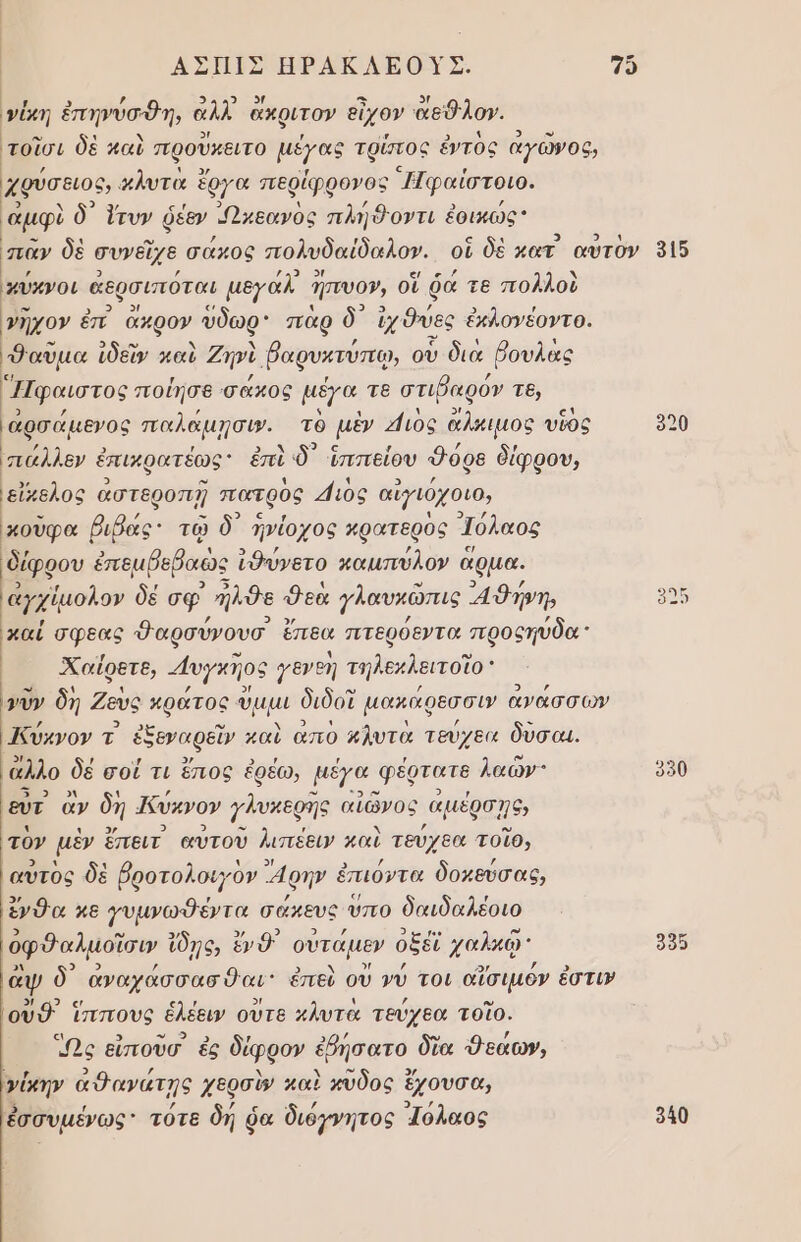 ΑΣΠΙΣ ΗΡΑΚΛΕΟΥΣ. 75
νίκη ἐπηνύσθη, ἀλλ' ἄκριτον εἶχον ἄεθλον.
τοῖσι δὲ καὶ προὔκειτο μέγας τρίπος ἐντὸς ἀγῶνος,
χρύσειος, κλυτὰ ἔργα περίφρονος Ἡφαίστοιο.
ἀμφὶ δ' ἴτυν ῥέεν Ὠκεανὸς πλήθοντι ἐοικώς·
πᾶν δὲ συνεῖχε σάκος πολυδαίδαλον. οἱ δὲ κατ' αὐτὸν 315
κύκνοι ἀερσιπόται μεγάλ' ἤπυον, οἵ ῥά τε πολλοὶ
νῆχον ἐπ' ἄκρον ὕδωρ· πὰρ δ' ἰχθύες ἐκλονέοντο.
θαῦμα ἰδεῖν καὶ Ζηνὶ βαρυκτύπῳ, οὗ διὰ βουλὰς
Ἥφαιστος ποίησε σάκος μέγα τε στιβαρόν τε,
ἀρσάμενος παλάμῃσιν. τὸ μὲν Διὸς ἄλκιμος υἱὸς 320
πάλλεν ἐπικρατέως· ἐπὶ δ' ἱππείου θόρε δίφρου,
εἴκελος ἀστεροπῇ πατρὸς Διὸς αἰγιόχοιο,
κοῦφα βιβάς· τῷ δ' ἡνίοχος κρατερὸς Ἰόλαος
δίφρου ἐπεμβεβαὼς ἰθύνετο καμπύλον ἅρμα.
ἀγχίμολον δέ σφ' ἦλθε θεὰ γλαυκῶπις Ἀθήνη, 325
καί σφεας θαρσύνουσ' ἔπεα πτερόεντα προςηύδα·
Χαίρετε, Λυγκῆος γενεὴ τηλεκλειτοῖο·
νῦν δὴ Ζεὺς κράτος ὔμμι διδοῖ μακάρεσσιν ἀνάσσων
Κύκνον τ' ἐξεναρεῖν καὶ ἀπὸ κλυτὰ τεύχεα δῦσαι.
ἄλλο δέ σοί τι ἔπος ἐρέω, μέγα φέρτατε λαῶν· 330
εὖτ' ἂν δὴ Κύκνον γλυκερῆς αἰῶνος ἀμέρσῃς,
τὸν μὲν ἔπειτ' αὐτοῦ λιπέειν καὶ τεύχεα τοῖο,
αὐτὸς δὲ βροτολοιγὸν Ἄρην ἐπιόντα δοκεύσας,
ἔνθα κε γυμνωθέντα σάκευς ὕπο δαιδαλέοιο
ὀφθαλμοῖσιν ἴδῃς, ἔνθ' οὐτάμεν ὀξέϊ χαλκῷ· 335
ἂψ δ' ἀναχάσσασθαι· ἐπεὶ οὔ νύ τοι αἴσιμόν ἐστιν
οὔθ' ἵππους ἑλέειν οὔτε κλυτὰ τεύχεα τοῖο.
Ὣς εἰποῦσ' ἐς δίφρον ἐβήσατο δῖα θεάων,
νίκην ἀθανάτης χερσὶν καὶ κῦδος ἔχουσα,
ἐσσυμένως· τότε δή ῥα διόγνητος Ἰόλαος 340